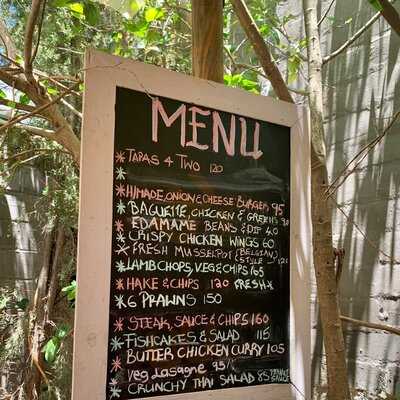 MENU
* TAPAS 4 TWO 120
*
* H/MADE, ONION & CHEESE BURGER 95
* BAGUETTE, CHICKEN & GREENS 90
* EDAMAME BEANS & DIP 40
* CRISPY CHICKEN WINGS 60
* FRESH MUSSELPOT (BELGIAN STYLE)
* LAMB CHOPS, VEG & CHIPS 165
* HAKE & CHIPS 120 FRESH*
* 6 PRAWNS 150
* STEAK, SAUCE & CHIPS 160
* FISHCAKES & SALAD 115
* BUTTER CHICKEN CURRY 105
* Veg LASAGNE 95
* CRUNCHY THAI SALAD 85